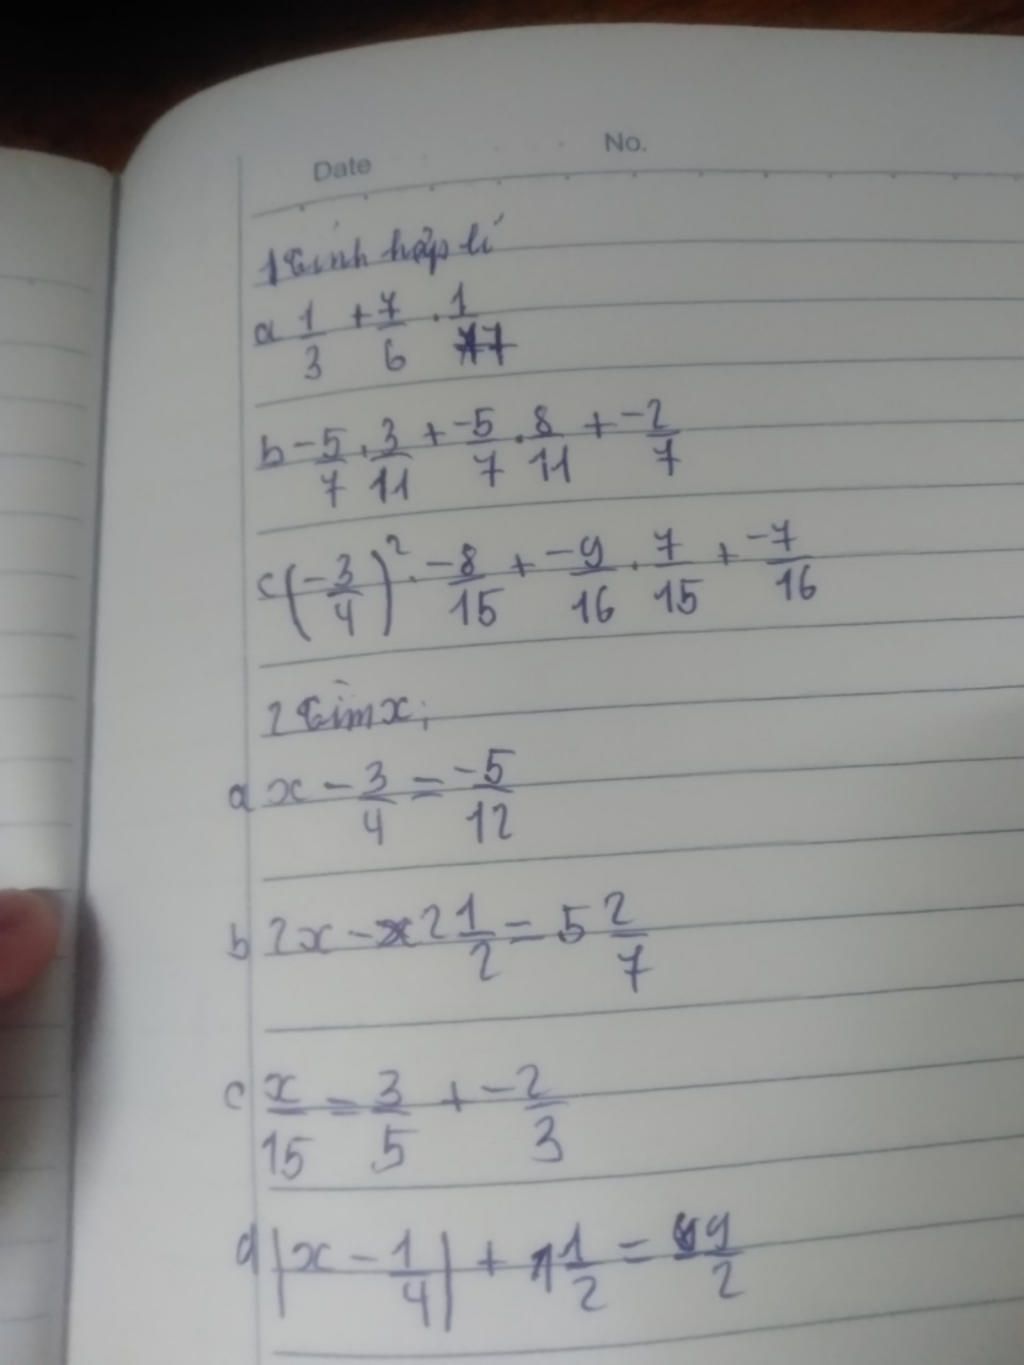 Date No.
1 Tính hợp lí
a 1/3 + 7/6 . 1/7
b -5/7 . 3/11 + -5/7 . 8/11 + -2/7
c (-3/4)² . -8/15 + -9/16 . 7/15 + -7/16
2 Tìm x;
a x - 3/4 = -5/12
b 2x - 2 1/2 = 5 2/7
c x/15 = 3/5 + -2/3
d |x - 1/4| + 1 1/2 = 9/2